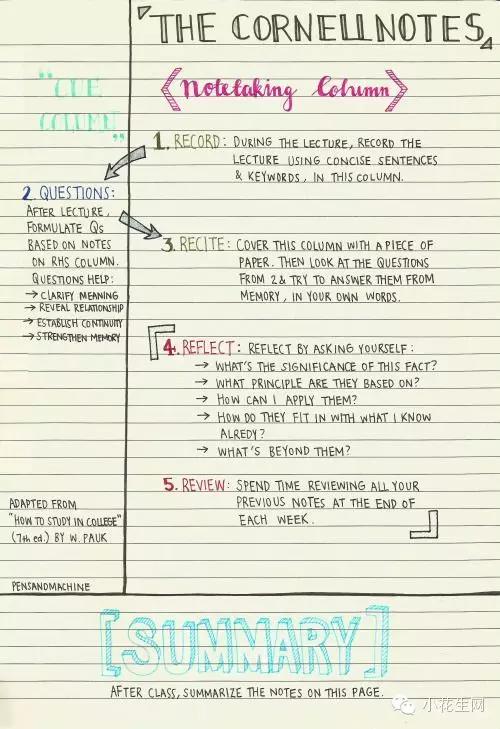 THE CORNELLNOTES
"CUE
COLUMN"
Notetaking Column
1. RECORD: DURING THE LECTURE, RECORD THE
LECTURE USING CONCISE SENTENCES
& KEYWORDS, IN THIS COLUMN.
2. QUESTIONS:
AFTER LECTURE,
FORMULATE QS
BASED ON NOTES
ON RHS COLUMN.
QUESTIONS HELP:
→ CLARIFY MEANING
→ REVEAL RELATIONSHIP
→ ESTABLISH CONTINUITY
→ STRENGTHEN MEMORY
3. RECITE: COVER THIS COLUMN WITH A PIECE OF
PAPER. THEN LOOK AT THE QUESTIONS
FROM 2 & TRY TO ANSWER THEM FROM
MEMORY, IN YOUR OWN WORDS.
4. REFLECT: REFLECT BY ASKING YOURSELF:
→ WHAT'S THE SIGNIFICANCE OF THIS FACT?
→ WHAT PRINCIPLE ARE THEY BASED ON?
→ HOW CAN I APPLY THEM?
→ HOW DO THEY FIT IN WITH WHAT I KNOW
ALREDY?
→ WHAT'S BEYOND THEM?
5. REVIEW: SPEND TIME REVIEWING ALL YOUR
PREVIOUS NOTES AT THE END OF
EACH WEEK.
ADAPTED FROM
"HOW TO STUDY IN COLLEGE"
(7th ed.) BY W. PAUK
PENSANDMACHINE
[SUMMARY]
AFTER CLASS, SUMMARIZE THE NOTES ON THIS PAGE.
小花生网